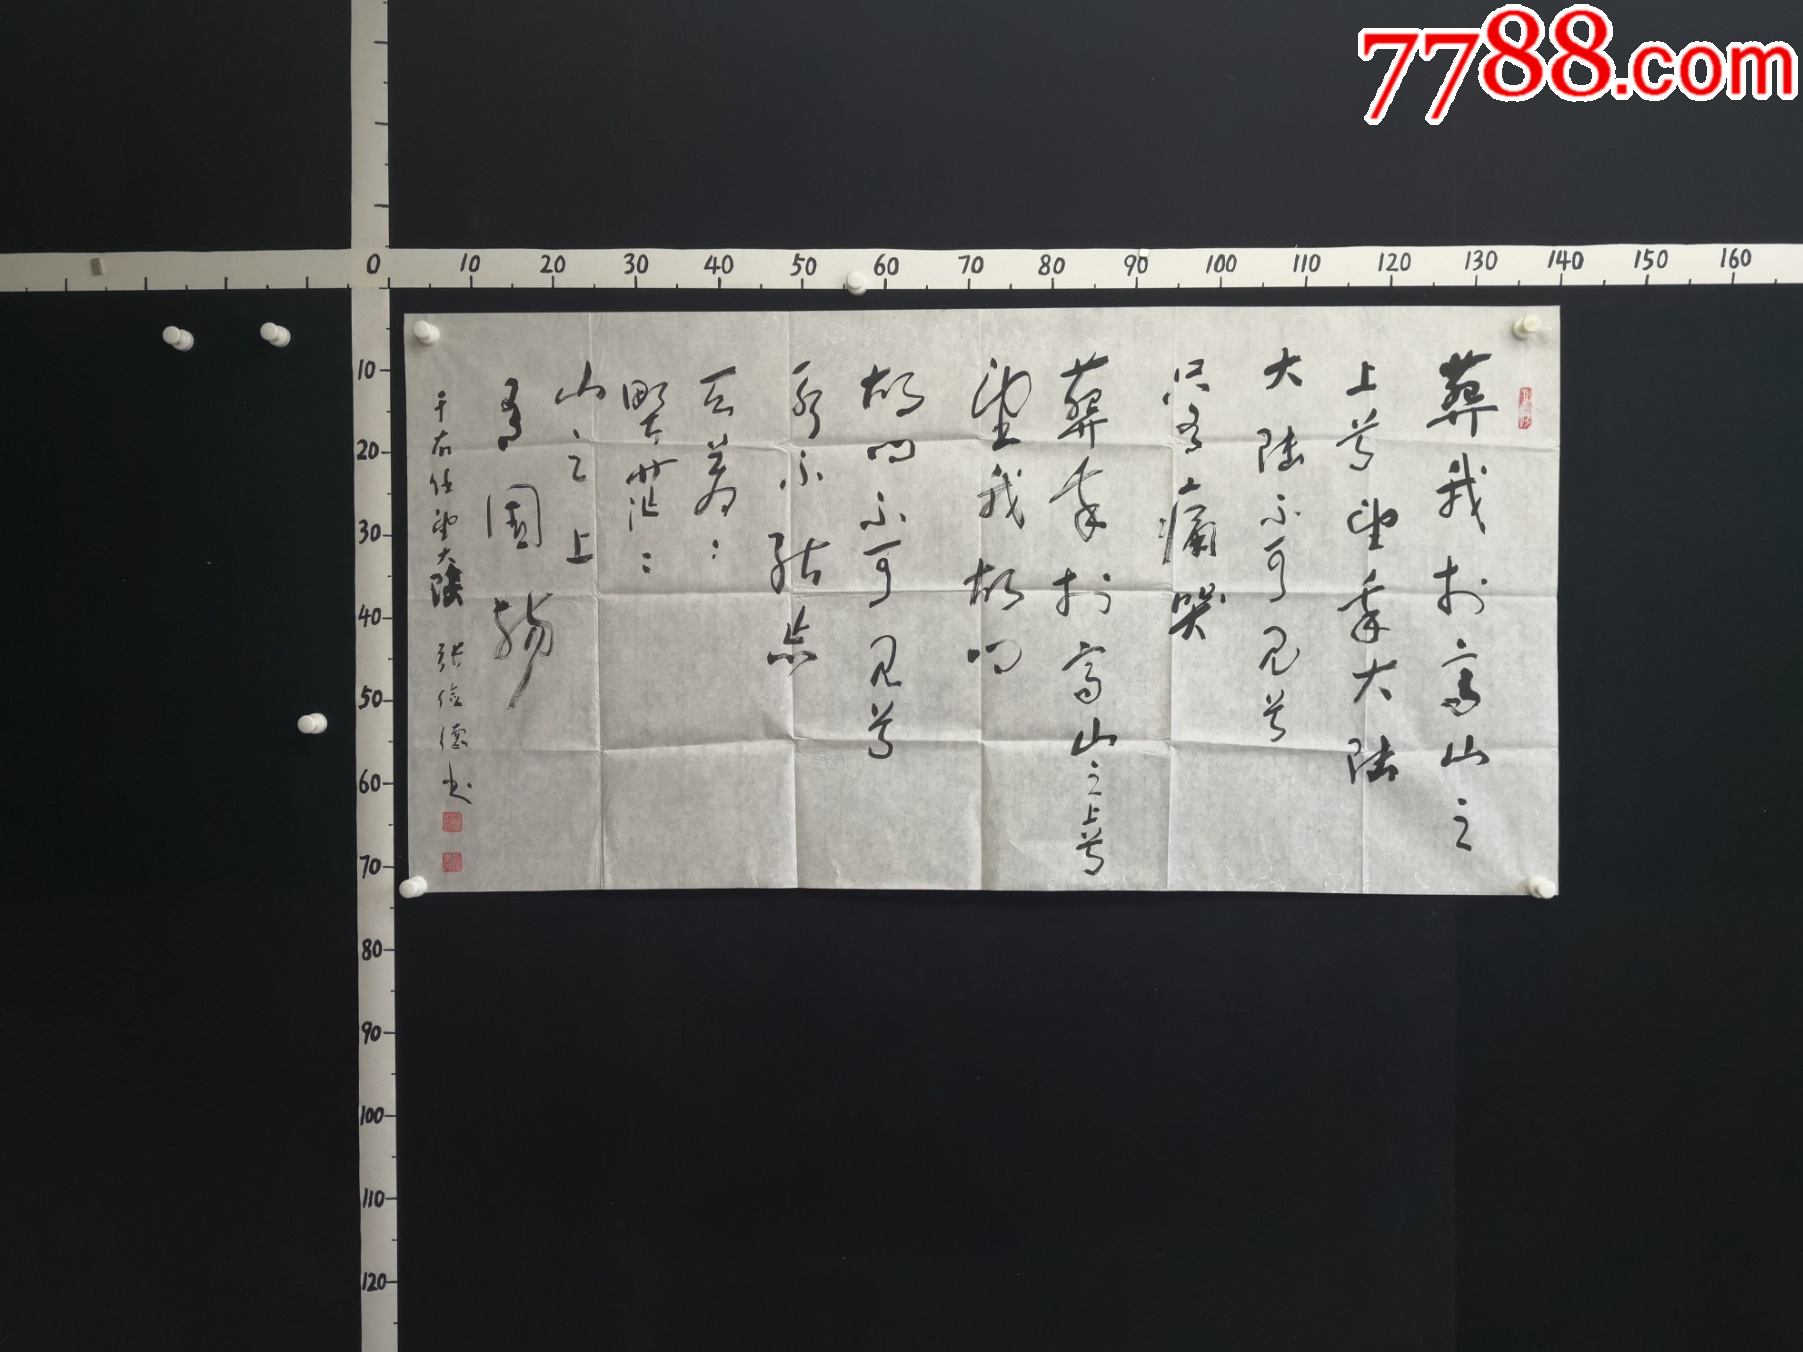 7788.com
0 10 20 30 40 50 60 70 80 90 100 110 120 130 140 150 160
10
20
30
40
50
60
70
80
90
100
110
120
葬我於高山之
上兮望我大陆
大陆不可见兮
只有痛哭
葬我於高山之上兮
望我故乡
故乡不可见兮
永不能忘
天苍苍
野茫茫
山之上
有国殇
于右任望大陆 张俭德书